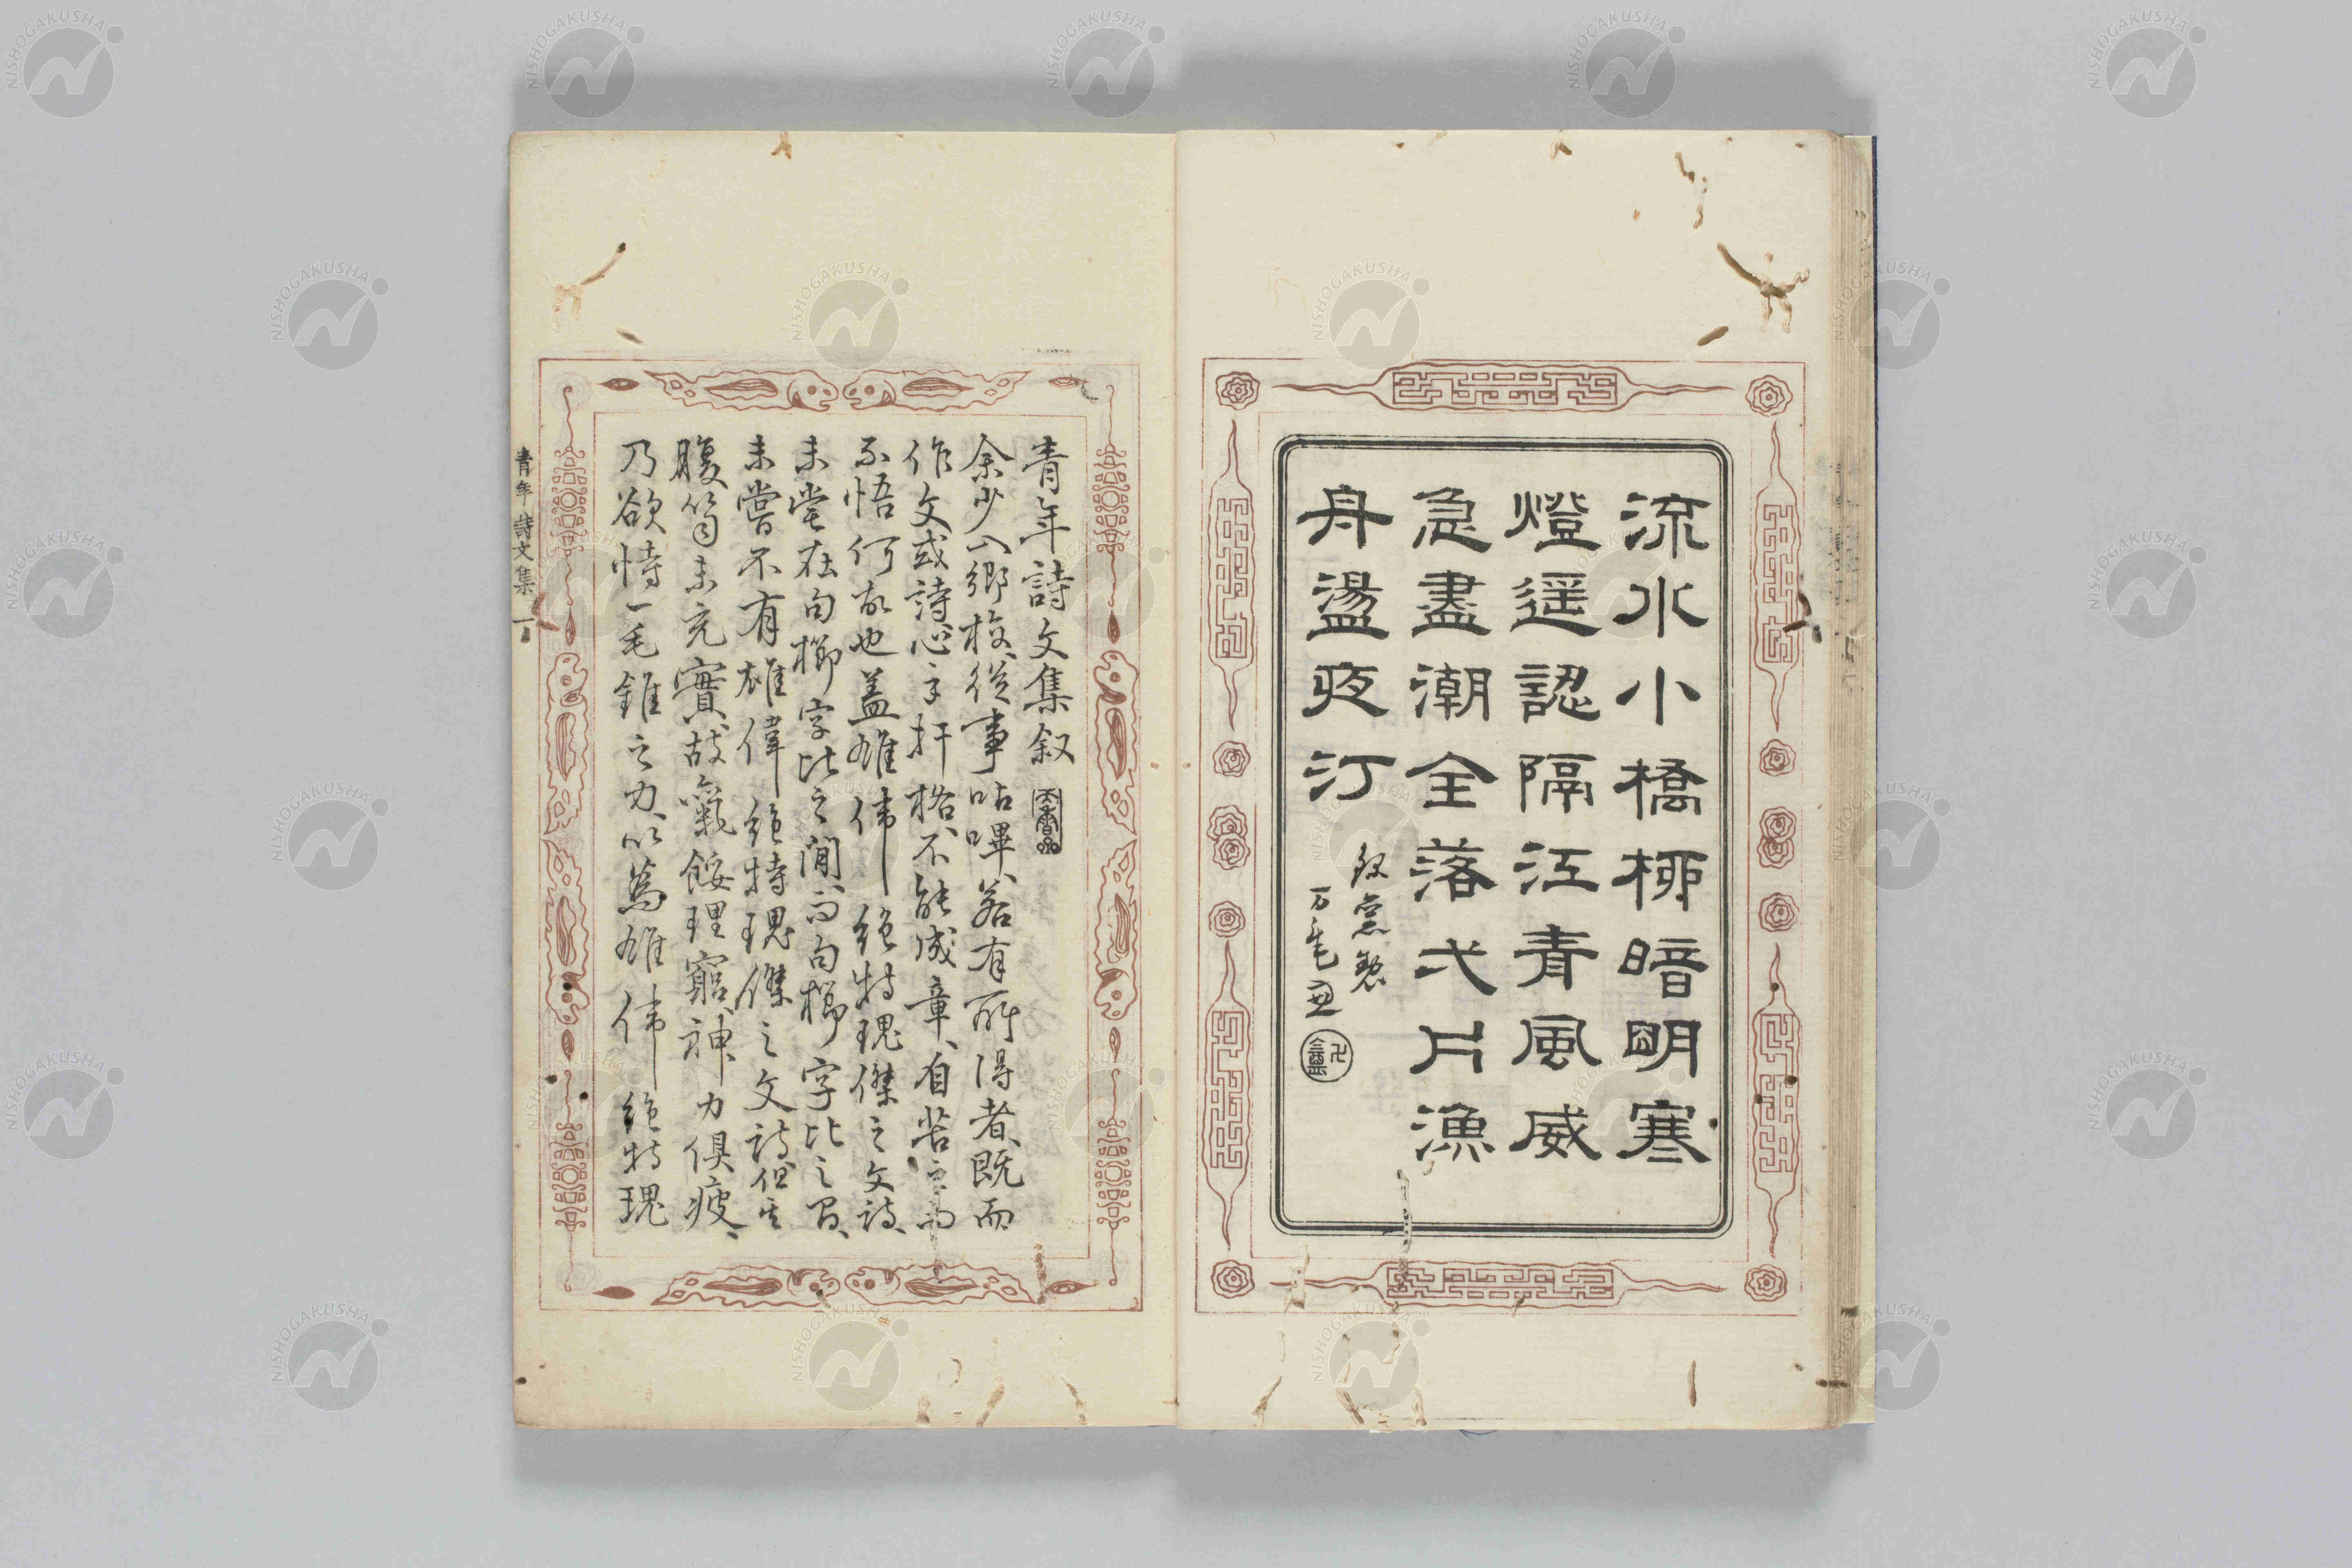 流水小橋柳暗明寒
燈遥認隔江青風威
急盡潮全落弌片漁
舟盪夜汀
青年詩文集叙
余少入郷校、從事呫嗶、若有所得者、既而
作文或詩、心手扞格、不能成章、自苦之而
不悟何故也蓋雄偉絶特瑰傑之文詩、
未嘗在句櫛字比之間、而句櫛字比之習、
未嘗不有雄偉絶特瑰傑之文詩、但其
腹笥未充實、故氣餒理窮、神力倶疲、
乃欲恃一毛錐之力、以爲雄偉絶特瑰
青年詩文集
NISHOGAKUSHA